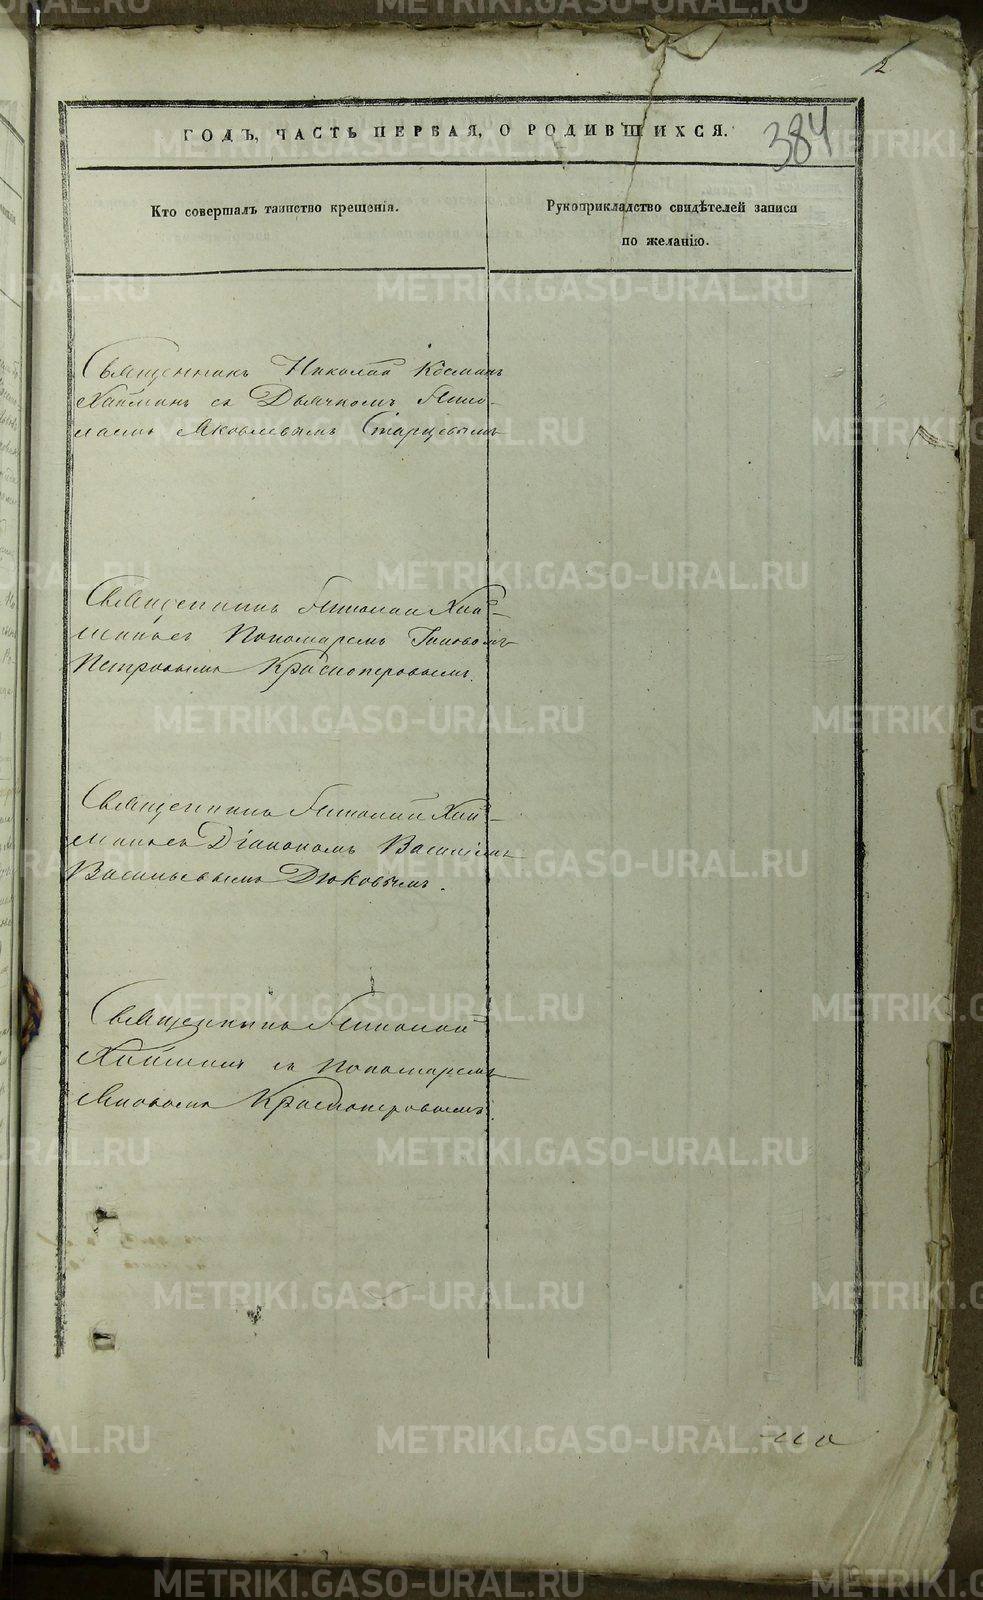 2
384
ГОДЪ, ЧАСТЬ ПЕРВАЯ, О РОДИВШИХСЯ.
Кто совершалъ таинство крещенія.
Рукоприкладство свидѣтелей записи
по желанію.
Священникъ Николай Косминъ
съ Дьячкомъ Нико-
лаемъ Яковлевымъ Старцевымъ
Священникъ Николай
Пономаремъ
Петровымъ Красноперовымъ.
Священникъ Николай
Діакономъ Василіемъ
Васильевымъ Дюковымъ.
Священникъ Николай
съ Пономаремъ
Красноперовымъ.
METRIKI.GASO-URAL.RU